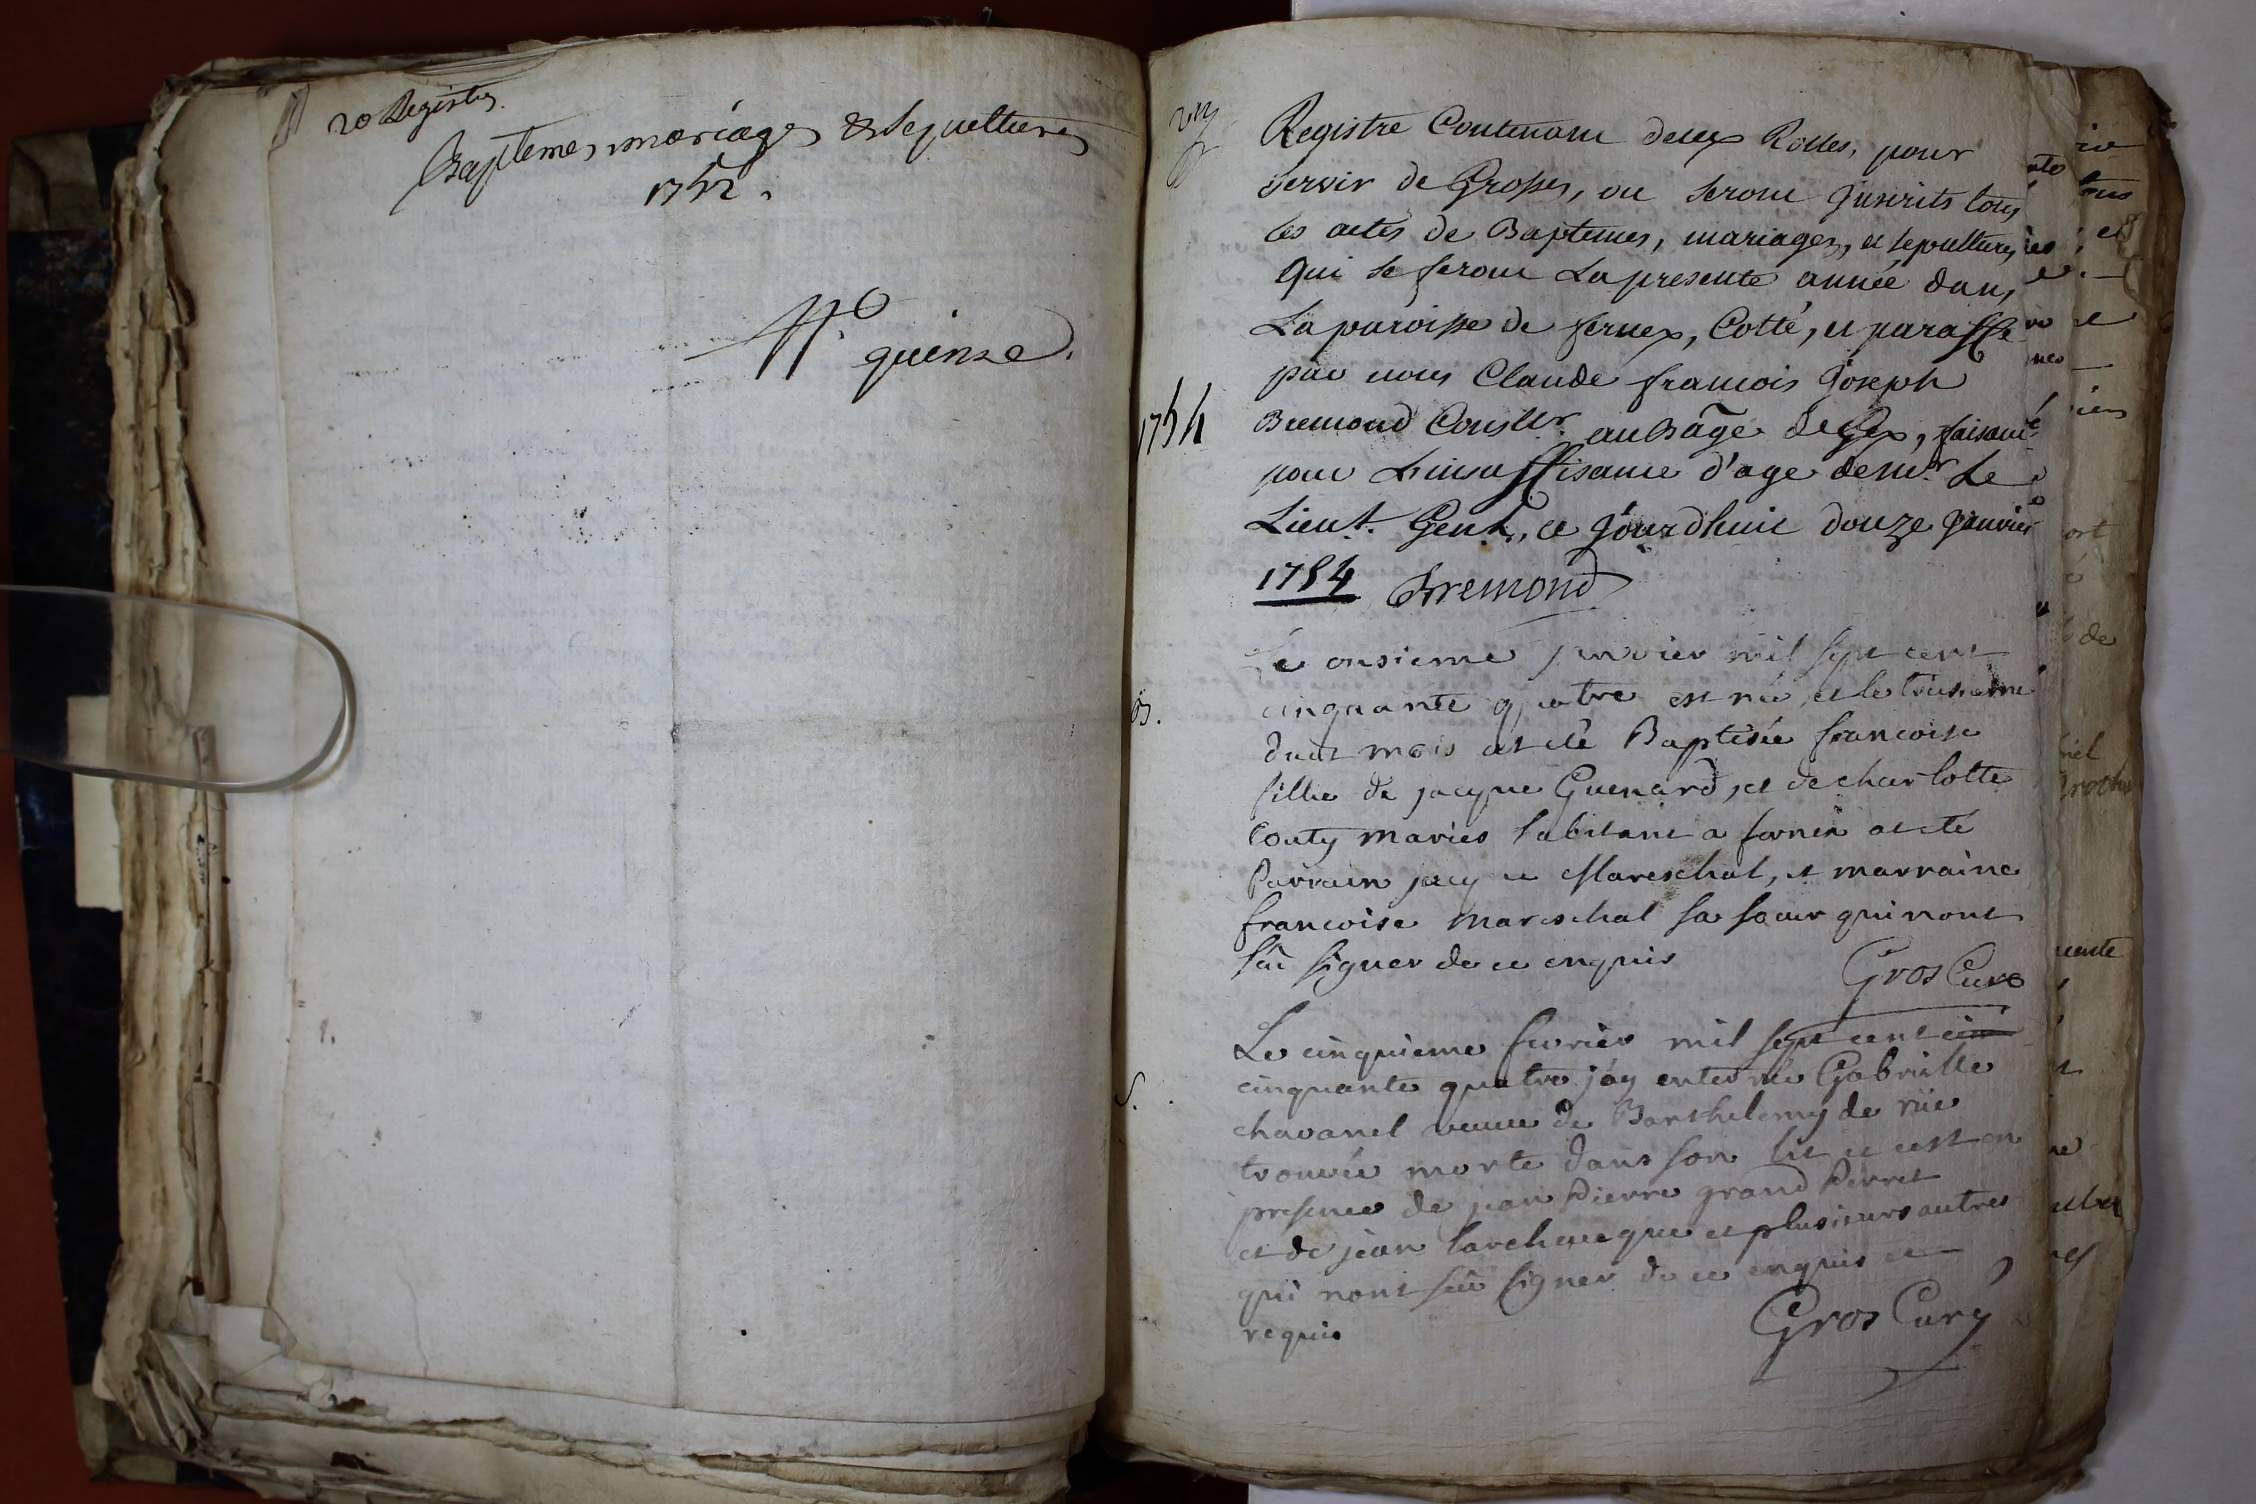 20 Registres
Baptemes mariages & Sepultures
1752.
quinze.
Registre Contenant deux Rolles, pour
servir de Grosse, ou seront Inscrits tous
les actes de Baptemes, mariages, et sepultures
qui se feront La presente année dans
La paroisse de fernex, Cotté, et paraffé
par nous Claude francois Joseph
Bremond Conser. au Bâge de Gex, faisant
pour L'insuffisance d'age de Mr. Le
Lieut. Genl., ce Jourdhuic douze Janvier
1754 Bremond
1754
B.
Le onsieme janvier mil sept cent
cinquante quatre est née et le treisieme
dudt mois at eté Baptisée francoise
fille de jacque Guenard, et de charlotte
Couty mariés habitant a fernex at eté
Parrain jacque Mareschal, et marraine
francoise mareschal sa soeur qui nont
sçû signer de ce enquis
Gros Curé
S.
Le cinquieme fevrier mil sept cent cin
cinquante quatre j'ay enterrée Gabrielle
chavanel veuve de Barthelemy de rüe
trouvée morte dans son lit et cest en
presence de jean Pierre grand Perret
et de jean larcheveque et plusieurs autres
qui nont sçû signer de ce enquis et
requis
Gros Curé